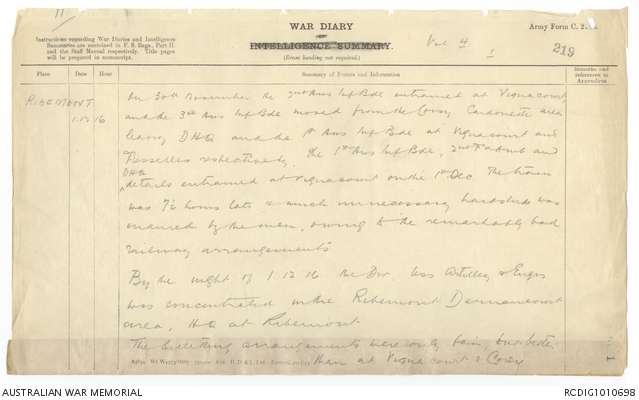 11
WAR DIARY
or
INTELLIGENCE SUMMARY.
(Erase heading not required.)
Army Form C. 2
Vol 4
1
219
Instructions regarding War Diaries and Intelligence
Summaries are contained in F. S. Regs., Part II.
and the Staff Manual respectively. Title pages
will be prepared in manuscript.
Place Date Hour Summary of Events and Information Remarks and references to Appendices
RIBEMONT
1.12.16
On 30th November the 2nd Aus Inf Bde entrained at Vignacourt
and the 3rd Aus Inf Bde moved from the Cardonette area
leaving DHQ and the 1st Aus Inf Bde at Vignacourt and
Flesselles respectively. The 1st Aus Inf Bde, 2nd Fd Amb and
DHQ
details entrained at Vignacourt on the 1st Dec. The train
was 7½ hours late & much unnecessary hardship was
endured by the men, owing to the remarkably bad
railway arrangements
By the night of 1.12.16 the Div. less Artillery & Engrs
was concentrated in the Ribemont Dernancourt
area, HQ at Ribemont
The billeting arrangements were only fair, but better
than at Vignacourt &
AUSTRALIAN WAR MEMORIAL
RCDIG1010698